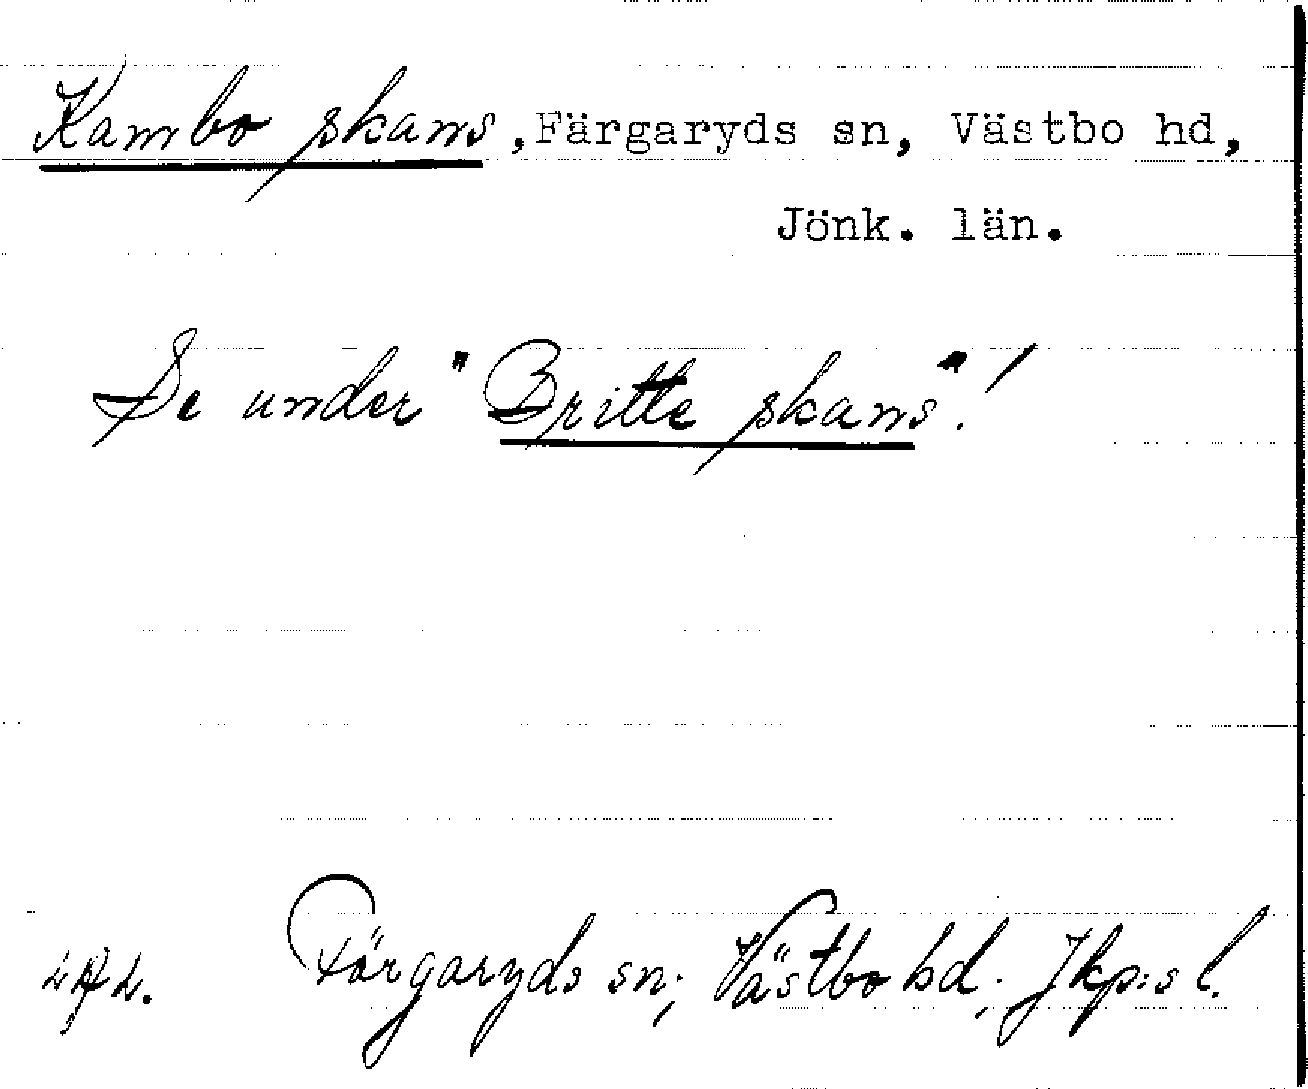 Kambo skans, Färgaryds sn, Västbo hd,
Jönk. län.
Se under "Britte skans"!
Färgaryds sn; Västbo hd; Jkp:s l.